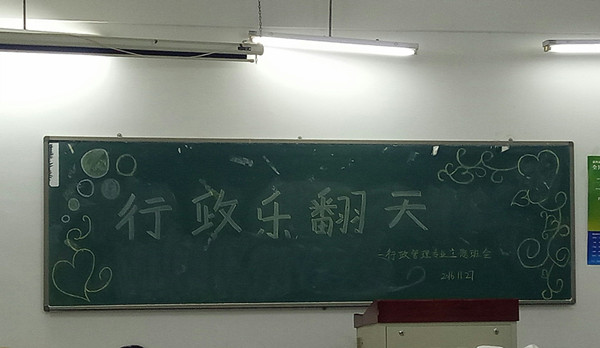 行政乐翻天
-行政管理专业主题班会
2016.11.27